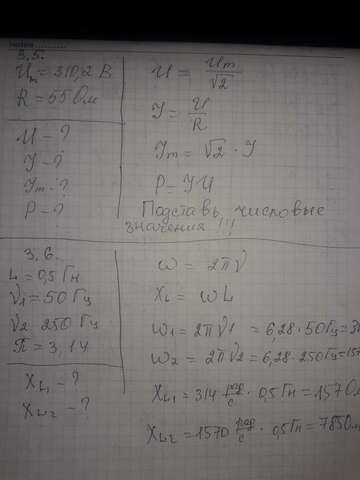 3.5.
Um = 310,2 В
R = 55 Ом
U = ?
I - ?
Im - ?
P = ?
U = Um/√2
I = U/R
Im = √2 · I
P = IU
Подставь числовые
значения !!!
3.6.
L = 0,5 Гн
ν1 = 50 Гц
ν2 250 Гц
π = 3,14
XL1 - ?
XL2 - ?
ω = 2πν
XL = ωL
ω1 = 2πν1 = 6,28 · 50 Гц = 31
ω2 = 2πν2 = 6,28 · 250 Гц = 157
XL1 = 314 рад/с · 0,5 Гн = 157 Ом
XL2 = 1570 рад/с · 0,5 Гн = 785 Ом